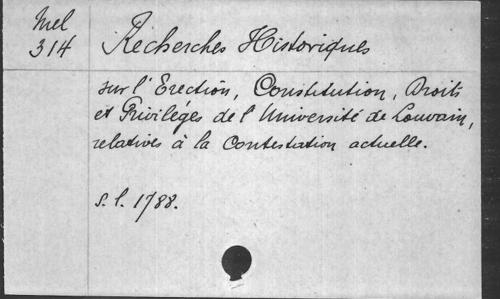 Mel
314
Recherches Historiques
sur l'Erection, Constitution, Droits
et Priviléges de l'Université de Louvain,
relatives à la Contestation actuelle.
s.l. 1788.